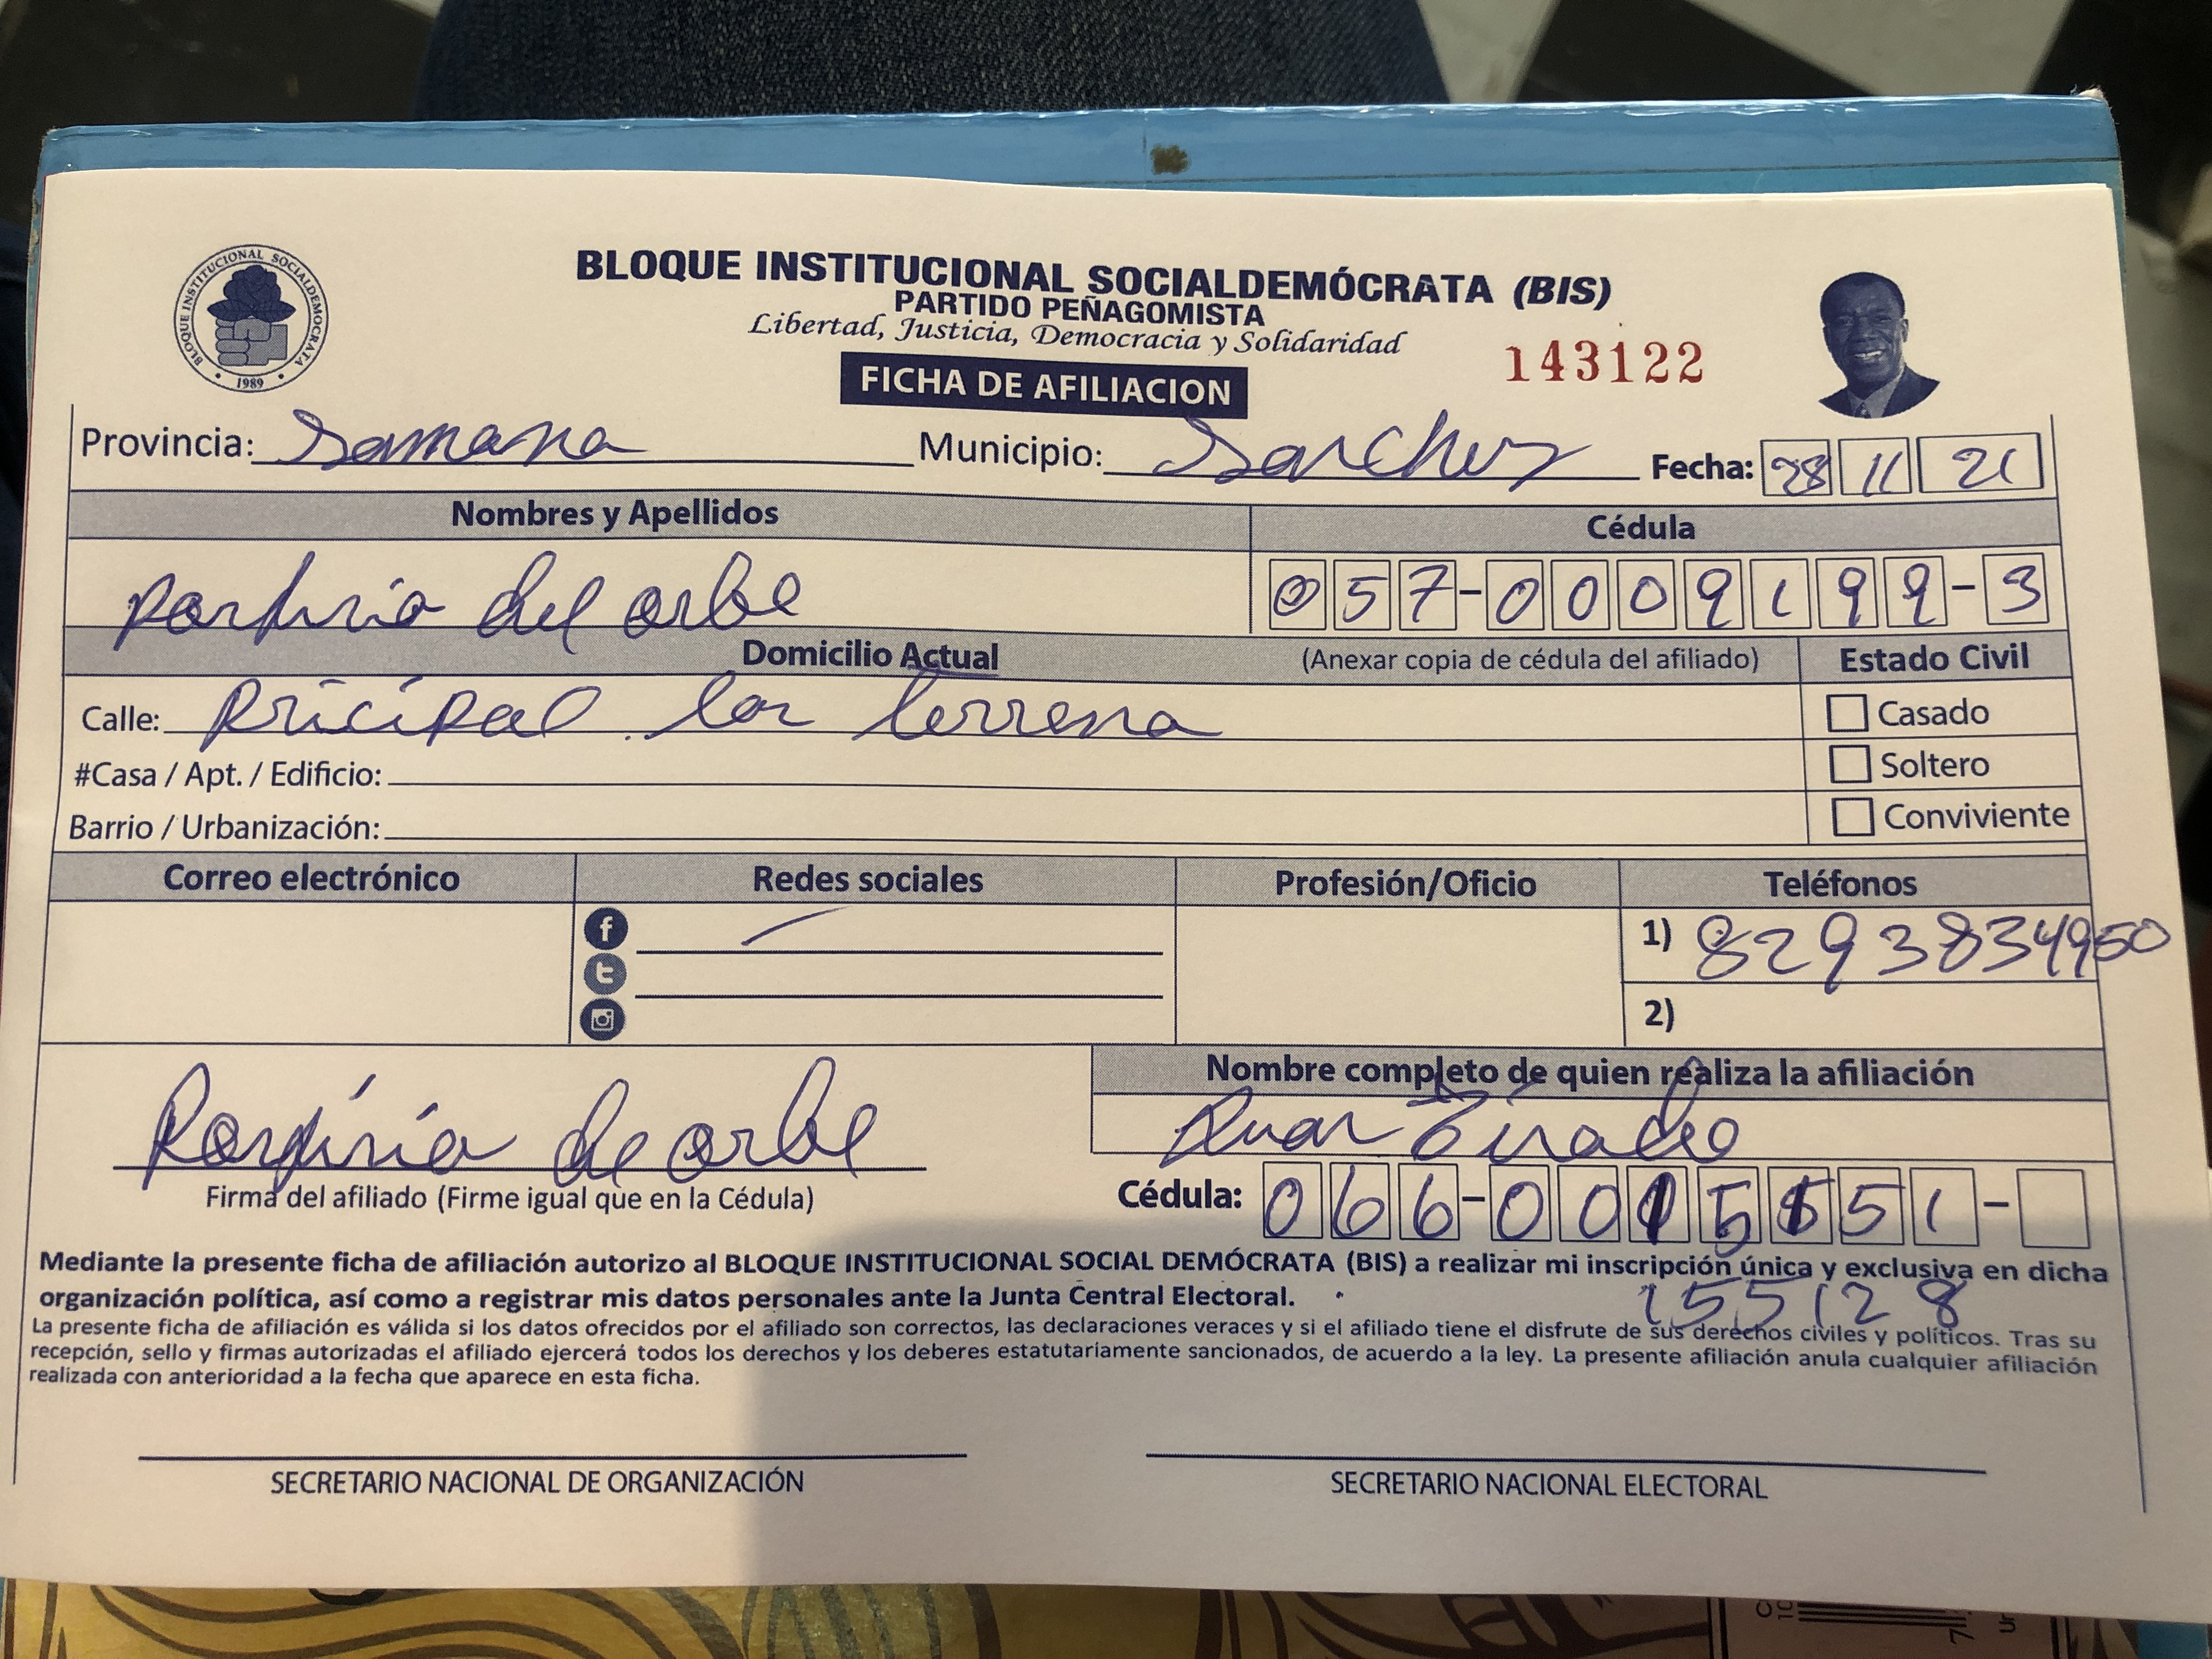 BLOQUE INSTITUCIONAL SOCIALDEMÓCRATA
1989
BLOQUE INSTITUCIONAL SOCIALDEMÓCRATA (BIS)
PARTIDO PEÑAGOMISTA
Libertad, Justicia, Democracia y Solidaridad
143122
FICHA DE AFILIACION
Provincia: Samana Municipio: Sanchez Fecha: 28 11 21
Nombres y Apellidos Cédula
porfirio del orbe 057-0009199-3
Domicilio Actual (Anexar copia de cédula del afiliado) Estado Civil
Calle: pricipal la terrena Casado
#Casa / Apt. / Edificio: Soltero
Barrio / Urbanización: Conviviente
Correo electrónico Redes sociales Profesión/Oficio Teléfonos
1) 8293834950
2)
Nombre completo de quien realiza la afiliación
Porfirio de orbe Juan Tirado
Firma del afiliado (Firme igual que en la Cédula) Cédula: 066-00 5 51-
Mediante la presente ficha de afiliación autorizo al BLOQUE INSTITUCIONAL SOCIAL DEMÓCRATA (BIS) a realizar mi inscripción única y exclusiva en dicha
organización política, así como a registrar mis datos personales ante la Junta Central Electoral. 155128
La presente ficha de afiliación es válida si los datos ofrecidos por el afiliado son correctos, las declaraciones veraces y si el afiliado tiene el disfrute de sus derechos civiles y políticos. Tras su
recepción, sello y firmas autorizadas el afiliado ejercerá todos los derechos y los deberes estatutariamente sancionados, de acuerdo a la ley. La presente afiliación anula cualquier afiliación
realizada con anterioridad a la fecha que aparece en esta ficha.
SECRETARIO NACIONAL DE ORGANIZACIÓN SECRETARIO NACIONAL ELECTORAL